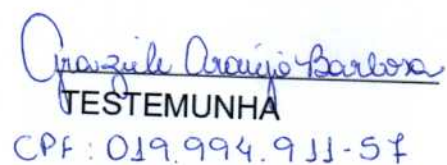 Graziele Araújo Barbosa
TESTEMUNHA
CPF: 019.994.911-57